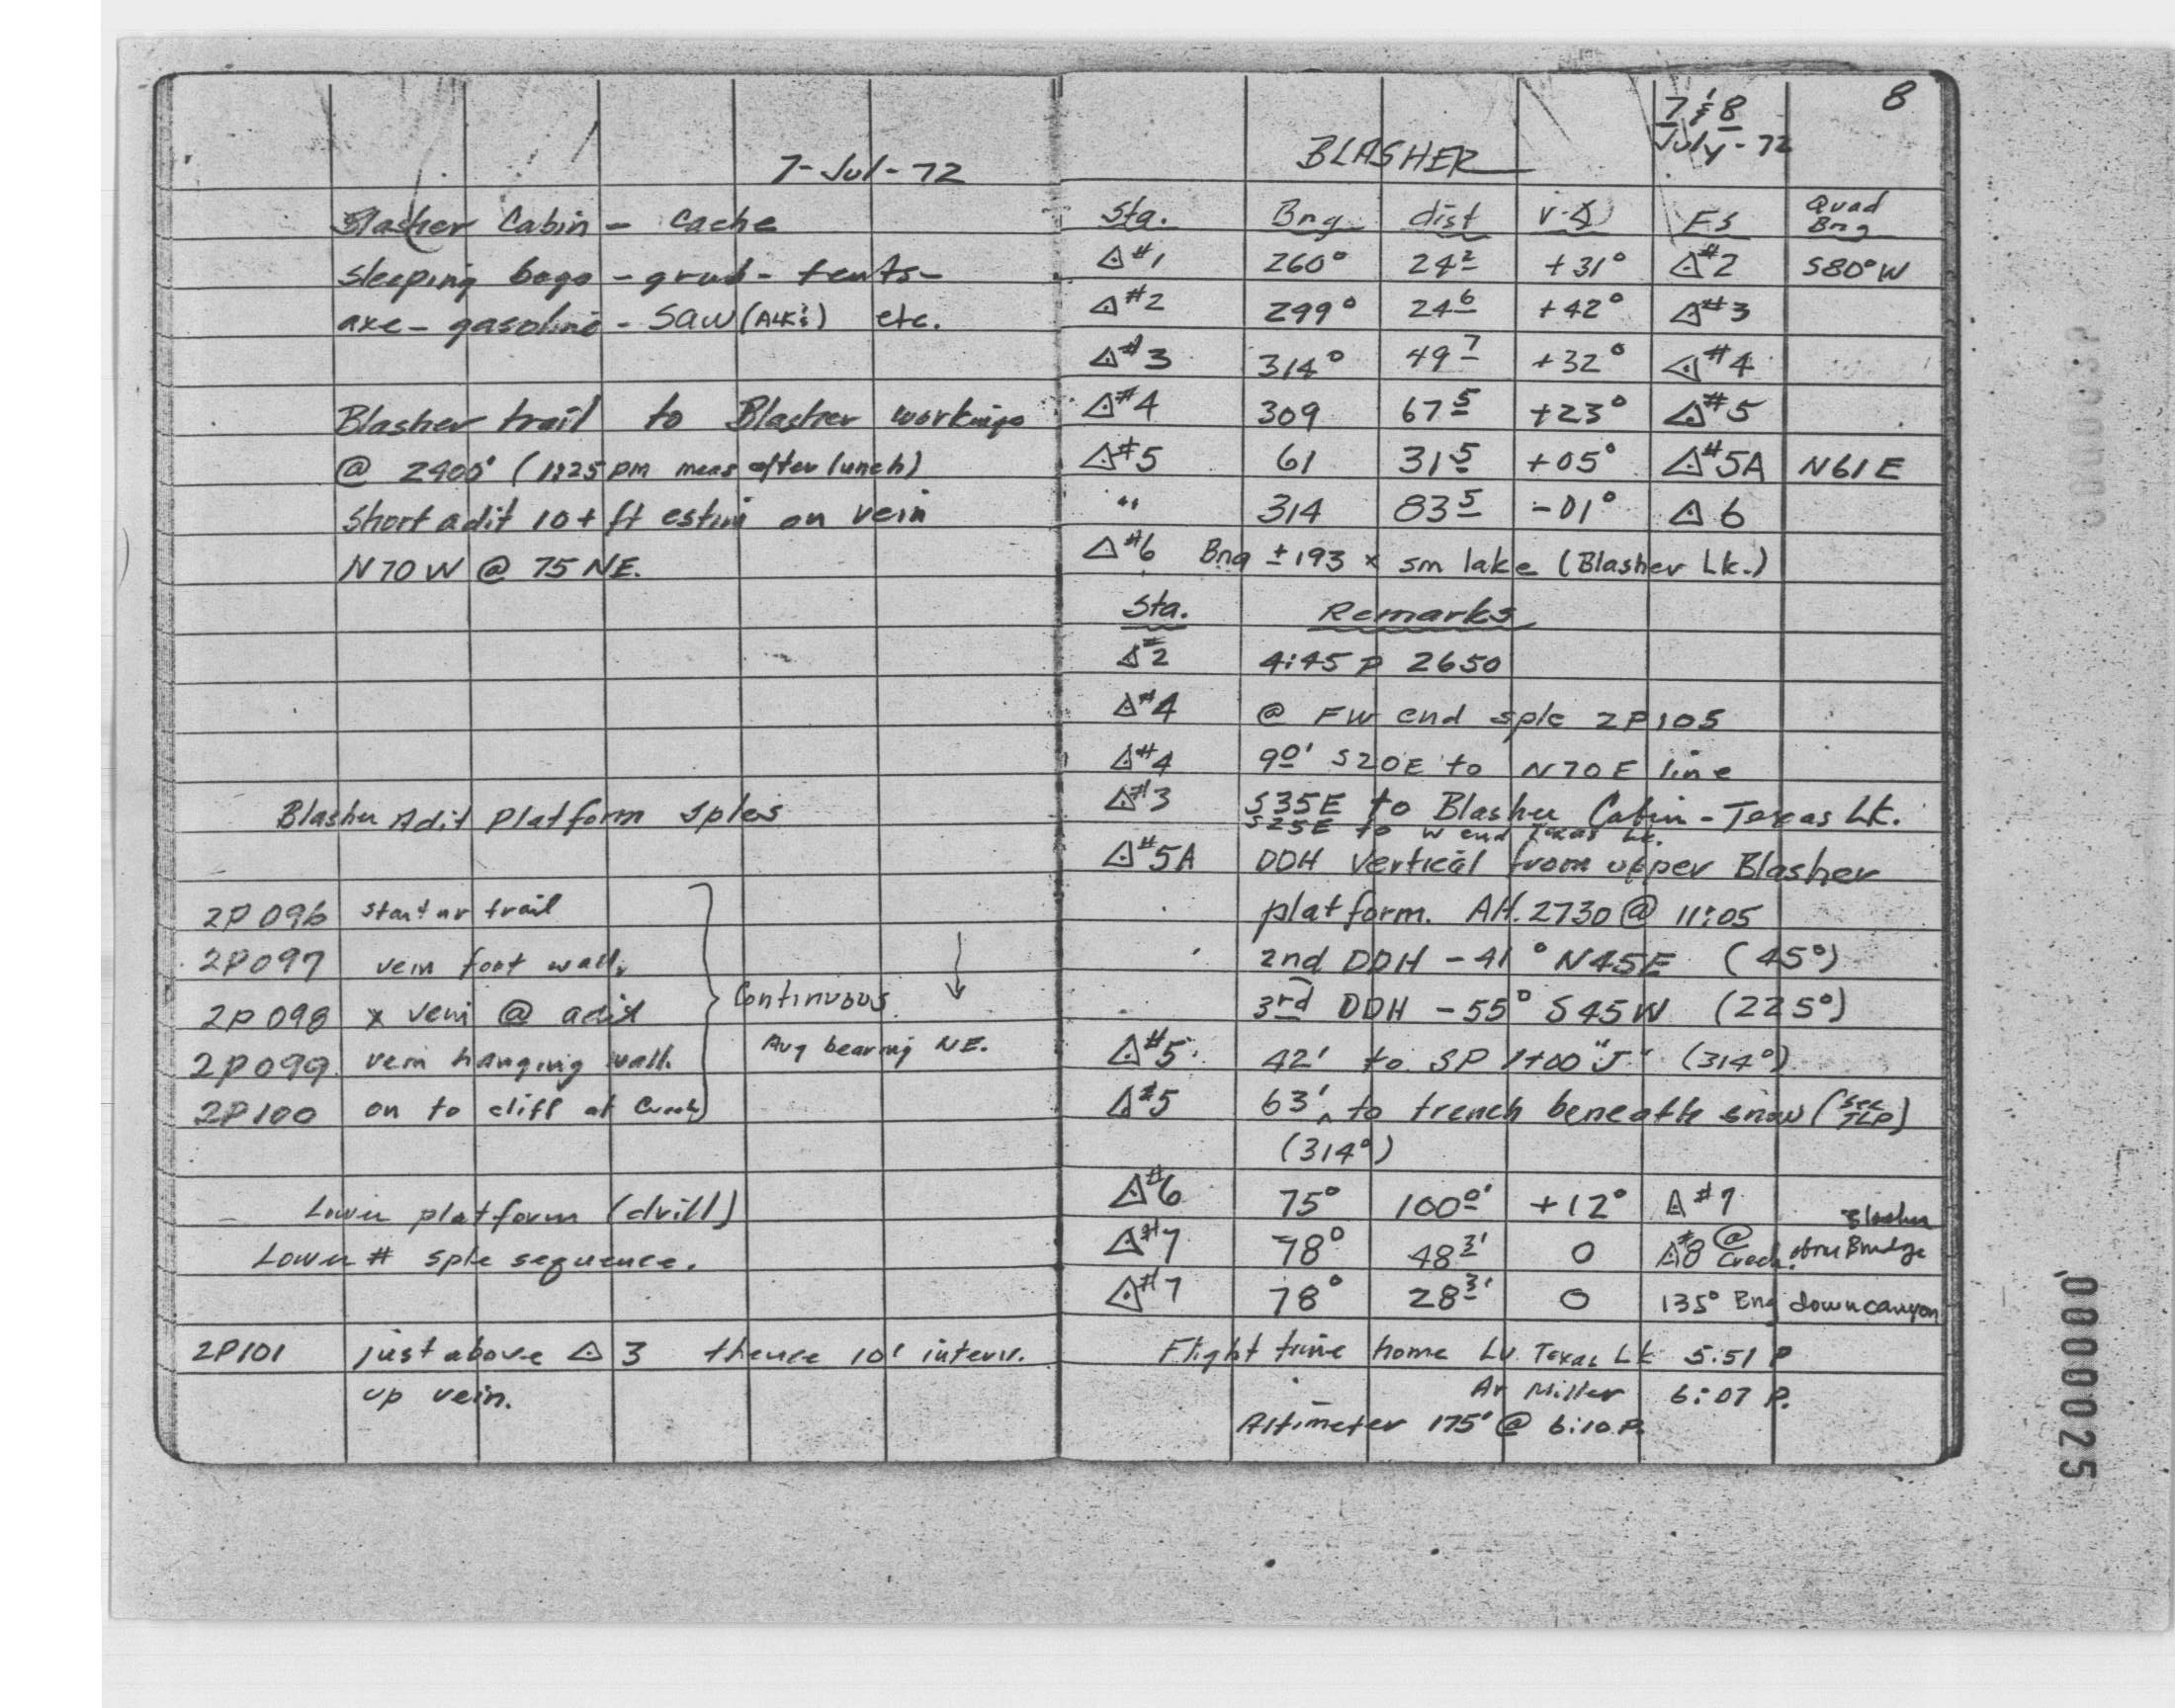 7-Jul-72
Blasher Cabin - Cache
Sleeping bags - grub - tents -
axe - gasoline - saw (ALK's) etc.
Blasher trail to Blasher workings
@ 2400' (1:25 pm meas after lunch)
Short adit 10+ ft estim on vein
N70W @ 75NE.
Blasher Adit Platform Sples
2P096 start nr trail
2P097 vein foot wall
2P098 x vein @ adit
2P099 vein hanging wall
2P100 on to cliff at Creek
Continuous ↓
Avg bearing NE.
Lower platform (drill)
Lower # sple sequence.
2P101 just above △ 3 thence 10' interv.
up vein.
8
7 & 8
July-72
BLASHER
Sta. Bng dist V∡ FS Quad Bng
△#1 260° 24 2 +31° △#2 S80°W
△#2 299° 24 6 +42° △#3
△#3 314° 49 7 +32° △#4
△#4 309 67 5 +23° △#5
△#5 61 31 5 +05° △#5A N61E
" 314 83 5 -01° △6
△#6 Bng ±193 x sm lake (Blasher Lk.)
Sta. Remarks
△#2 4:45 p 2650
△#4 @ FW end sple 2P105
△#4 9 0' S20E to N70E line
△#3 S35E to Blasher Cabin - Texas Lk.
S25E to W end Texas Lk.
△#5A DDH vertical from upper Blasher
platform. Alt. 2730 @ 11:05
2nd DDH -41° N45E (45°)
3rd DDH -55° S45W (225°)
△#5 42' to SP 1+00 "J" (314°)
△#5 63' ^ to trench beneath snow (see TLP)
(314°)
△#6 75° 100 0' +12° △#7
△#7 78° 48 3' 0 △#8 @ Creek. Blasher above Bridge
△#7 78° 28 3' 0 135° Bng down canyon
Flight time home Lv. Texas Lk 5:51 P
Ar Miller 6:07 P.
Altimeter 175' @ 6:10 P.
0000025